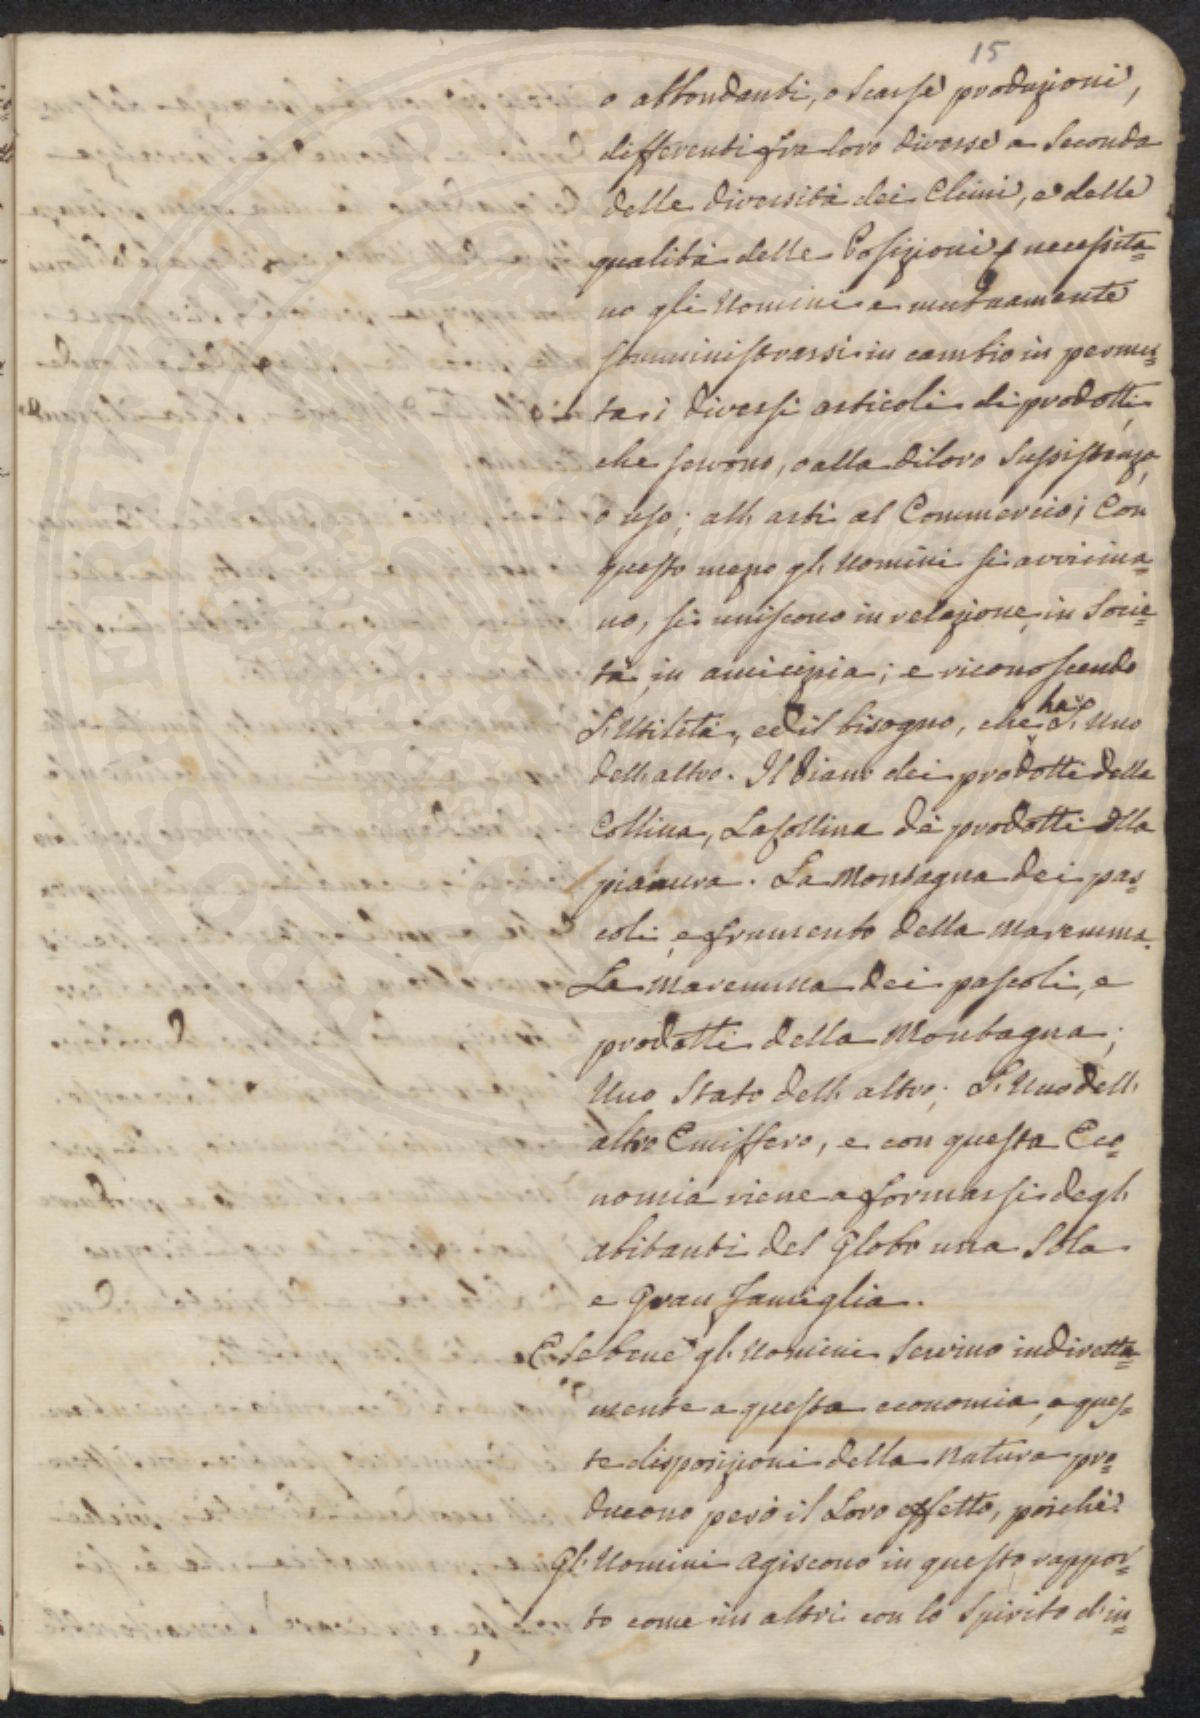 15
o abbondanti, o scarse produzioni,
differenti fra loro diverse a seconda
delle diversità dei Climi, e delle
qualità delle Posizioni necessita=
no gli Uomini e mutuamente
somministrarsi in cambio in permu=
ta i diversi articoli di prodotti
che servono, o alla di loro sussistenza,
o uso; all'arti al Commercio; Con
questo mezo gl'Uomini si avvicina=
no, si uniscono in relazione, in Socie=
tà, in amicizia; e riconoscendo
L'Utilità, ed il bisogno, che ha L'Uno
dell'altro. Il Piano dei prodotti della
Collina, La Collina de prodotti della
pianura. La Montagna dei pas=
coli, e frumento della Maremma.
La Maremma dei pascoli, e
prodotti della Montagna;
Uno Stato dell'altro; L'Uno dell'
altro Emissfero, e con questa Eco=
nomia viene a formarsi degl'
abitanti del Globo una Sola
e Gran famiglia.
E se bene gl'Uomini servino indiretta=
mente a questa economia, a ques=
te disposizioni della Natura pro=
ducono però il Loro effetto, poichè
Gl'Uomini agiscono in questo rappor=
to come in altri con lo spirito d'in=